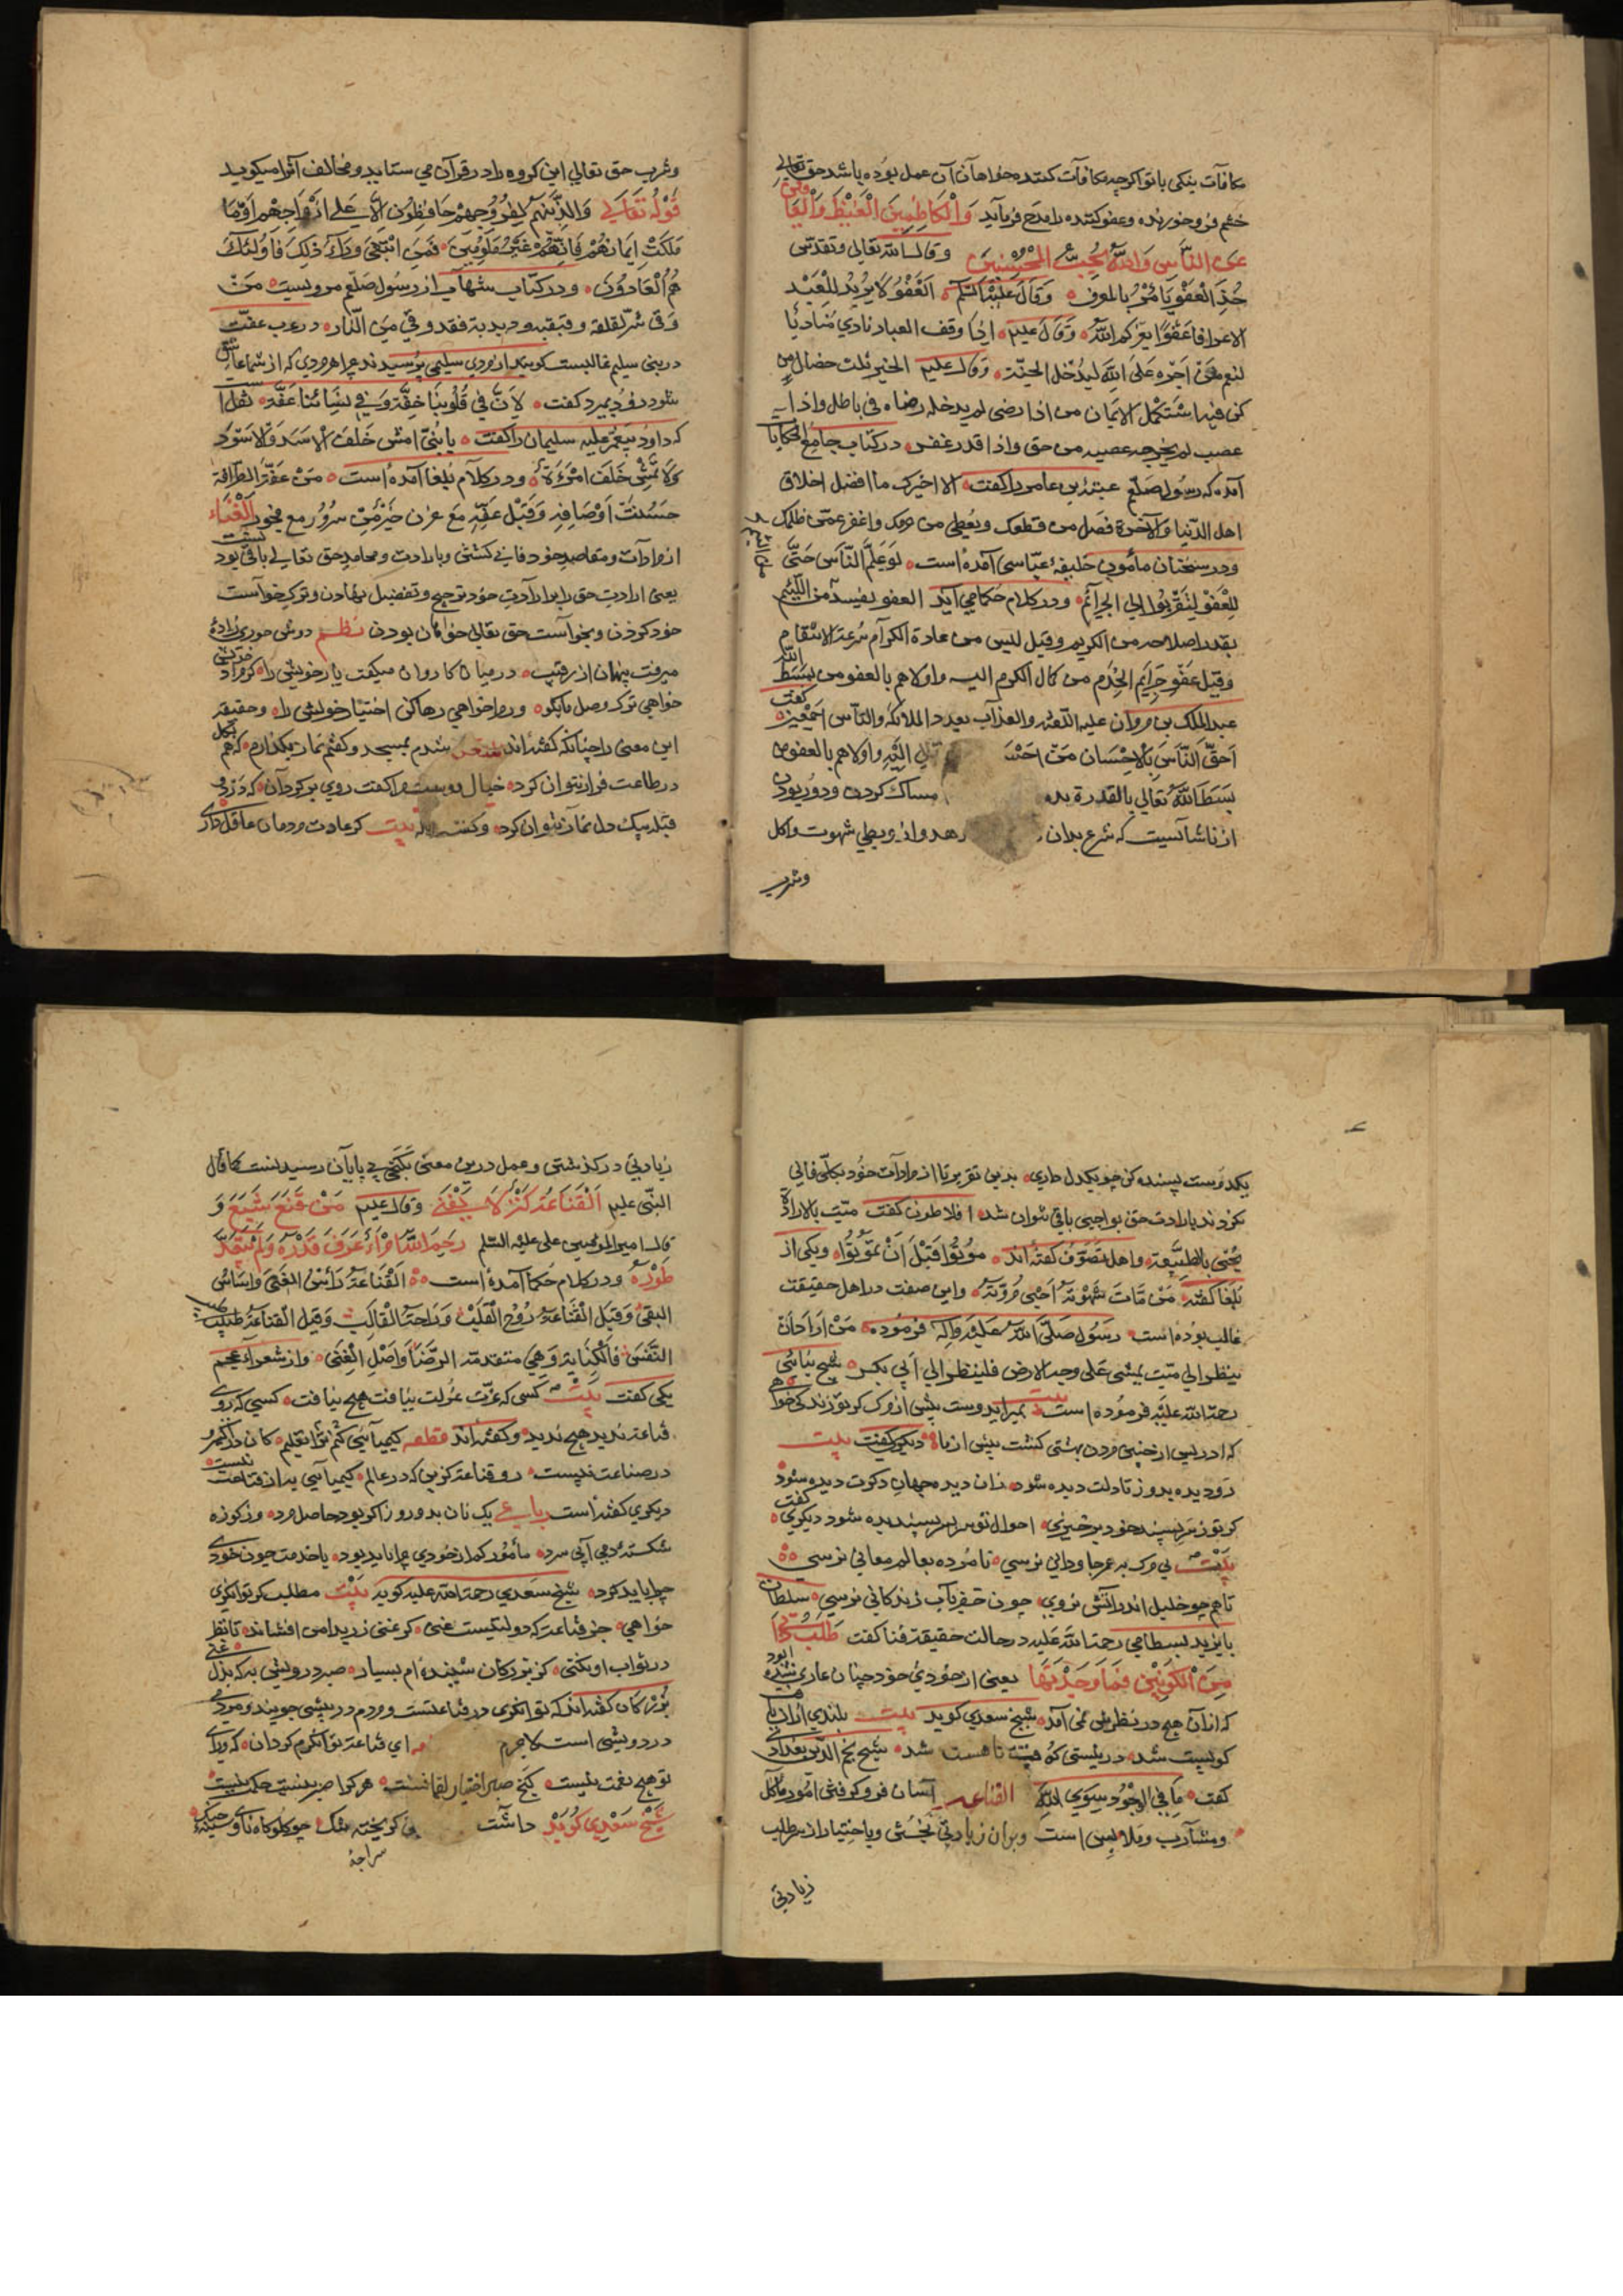 مکافات بنیکی یا تواکرچه مکافات کننده خواهان آن عمل بوده باشد حق تعالی
خشم فرو خورنده و عفو کننده را مدح فرماید وَالْکَاظِمِینَ الْغَیْظَ وَالْعَافِینَ
عَنِ النَّاسِ وَاللَّهُ یُحِبُّ الْمُحْسِنِینَ وقال الله تعالی وتقدس
خُذِ الْعَفْوَ یَا مُرْ بِالمعرف وَقَالَ عَلَیْهِ السَّلَم اَلعَفْوُ لَا یَزِیدُ لِلْعَبْدِ
الاعزا فاعفوا یعزکم الله وَقَالَ علیم اذا وقف العباد نادی مُنَادِیًا
لیقم مَنْ اَجْرُه عَلَی اللَّهِ لِیَدْخُل الجنّة وَقال علیم الخیر ثلث خصال من
کن فیه اسْتَکْمَل الایمان من اذا رضی لم یدخله رضاه فی باطل واذا
غضب لم یخرجه غضبه من حق واذا قدر غفر در کتاب جامع الحکایات
آمده که رسول صلّم عتبة بن عامر را کفت الا اخبرک ما افضل اخلاق
اهل الدنیا والآخرة فصل من قطعک ویُعطی من حرمک واغفر عمّن ظلمک
ودر سخنان مأمون خلیفهٔ عبّاسی آمده است لَوْ عَلِمَ النَّاس حَتَّی
لِلعفو لِتَقَرَّبُوا اِلی الجرائم ودر کلام حکما می آید العفو یفسد من اللئیم
بقدر اصلاحه من الکریم وقیل لیس من عادة الکرام سُرعة الانتقام
وقیل عفو جرایم الخدم من کمال الکرم الیه واولاهم بالعفو من بسط الله
عبد الملک بن مروان علیه اللعنه والعذاب بعدد الملائکة والناس اجمعین کفت
اَحَقُّ النَّاسِ بِالاِحْسان مَنْ احسَنَ الیه واولاهم بالعفو من
بسط الله تعالی بالقدرة یده مساک کردن ودور بودن
از ناشایست که شرع بدان دهد واز وبطی شهوت واکل
وشرب
وشرب حق تعالی این کروه را در قرآن می ستاید ومخالف آنرا میکوید
قَوْلُهُ تَعَالَی وَالَّذِینَهُمْ لِفُرُوجِهِمْ حَافِظُونَ اِلَّا عَلَی اَزْوَاجِهِمْ اَوْ مَا
مَلَکَتْ اِیمَانُهُمْ فَاِنَّهُمْ غَیْرُ مَلُومِینَ فَمَنِ ابْتَغَی وَرَاءَ ذَلِکَ فَاُولَئِکَ
هُمُ الْعَادُونَ ودر کتاب شهاب از رسول صلّم مرویست مَن
وَقی شرّ لقلقه وقبقبه ودبدبة فقد وقی مِنَ النّار در عرب عفّت
در بنی سلیم غالبست کویند از مردی سلیمی پرسیدند چرا هر مردی که از شما عاشق
شود زود بمیرد کفت لاَنَّ فی قُلُوبِنَا خِفَّة وَفِی نِسَائنَا عَفَّة نقل است
که داود پیغمبر علیه سلیمان را کفت یا بُنَیَّ امش خَلْفَ الْاَسَدِ وَالاَسْوَدِ
وَلَا تَمْشِ خَلْفَ امْرَءَةٍ ودر کلام بُلغا آمده است مَنْ عَفَّتْ اَطْرَافهُ
حَسُنَتْ اَوْصَافِهِ وَقِیْلَ عَفِّهِ مَعَ عزن خَیْرٌ مِنْ سرُور مع فجور اَلْغَنَاء
از مرادات ومقاصد خود فانی کشتن وبارادت ومحامد حق تعالی باقی بودن
یعنی ارادت حق را بر ارادت خود ترجیح وتفضیل نهادن وترک خواست
خود کردن وبخواست حق تعالی خواهان بودن نظم دوش حوری زاده
میرفت پنهان از رقیب در میان کاروان میکفت یار خویش را کر مراد خویش
خواهی ترک وصل ما بکو ور مرا خواهی رها کن اختیار خویش را وحقیقه
این معنی را چنانکه کفته اند شعر شدم بمسجد وکفتم نماز بکذارم که هم
در طاعت فراز نتوان کرد خیال دوست مرا کفت روی برکردان که در
قبله بیک دل نماز نتوان کرد وکفته اند بیت کر عادت مردمان عاقل داری
یکدوست پسنده کن چو یکدل داری بدین تقریر تا از مرادات خود بکلّی فانی
نکردند بارادت حق بواجبی باقی نتوان شد افلاطون کفت متّ بالارادة
تحیی بالطبیعة واهل تصوّف کفته اند مُوتُوا قَبْلَ اَنْ تَمُوتُوا ویکی از
بلغا کفته مَنْ مَاتَ شَهْوَتُهُ اَحْیی مُرُوَّتُهُ واین صفت در اهل حقیقت
غالب بوده است رسول صلّی الله علیه وآله فرموده مَنْ اَرَادَ اَنْ
ینظر الی میّت یمشی علی وجه الارض فلینظر الی ابی بکر شیخ سنائی
رحمة الله علیه فرموده است بیت بمیر ایدوست پیش از مرک کر تو زندکی خواهی
که ادریس از چنین مردن بهشتی کشت پیش از ما دیکری کفت بیت
رو دیده بدوز تا دلت دیده شود زان دیده جهان دکرت دیده شود
کر تو ز سر پسند خود برخیزی احوال تو سر بسر پسندیده شود دیکری کفت
بیت بی مرک به عمر جاودانی نرسی نامرده بعالم معانی نرسی
تا هم چو خلیل اندر آتش نروی چون خضر بآب زندکانی نرسی سلطان
بایزید بسطامی رحمة الله علیه در حالت حقیقة فنا کفت طَلَبْتُ
مِنَ الْکَوْنَیْنِ فَمَا وَجَدْتُهَا یعنی از خودی خود چنان عاری شده بود
که از آن هیچ در نظرش نمی آمد شیخ سعدی کوید بیت بلندی از آن یافت
کو پست شد در نیستی کوفت تا هست شد شیخ نجم الدین بغدادی
کفت مَا فِی الوُجُود سِوَی اللهِ القناعه آسان فرو کرفتن امور ماکل
ومشارب وملابس است وبر آن زیادتی نجستن وباختیار از سر طلب
زیادتی
زیادتی در کذشتن وعمل درین معنی بکنجی بی پایان رسیدنست کما قال
النبّی علیم اَلْقَنَاعَةُ کَنْزٌ لَا یَفْنَی وقال علیم مَنْ قَنَعَ شَبِعَ وَ
قال امیر المؤمنین علی علیه السلم رحم الله امرأ عَرَفَ قَدْرَهُ وَلَمْ یَتَعَدَّ
طَوْرَهُ ودر کلام حکما آمده است اَلْقَنَاعَة رَأسُ الغنی واساسُ
التقی وَقِیلَ القَنَاعَة رُوْحُ الْقَلْبُ وَرَاحَةُ الْقَالِبِ وقیل القناعة طبیب
النَّفس فَالْکِفَایَة وَهِیَ متقدمة الرّضا وَاَصْلِ الْغِنَی واز شعرآء عجم
یکی کفت بیت کسی که عزّت عزلت نیافت هیچ نیافت کسی که روی
قناعة ندید هیچ ندید وکفته اند قطعه کیمیآئی کنم ترا تعلیم کان در اکسیر
در صناعت نیست رو قناعت کزین که در عالم کیمیآئی به از قناعت نیست
دیکری کفته است رباعی یک نان بدو روز اکر بود حاصل مرد وز کوزه
شکستهٔ دمی آبی سرد مأمور کم از خودی چرا باید بود یا خدمت چون خودی
چرا باید کرد شیخ سعدی رحمة الله علیه کوید بیت مطلب کر توانکری
خواهی جز قناعت که دولتیست هنی کر غنی زر بدامن افشاند تا نظر
در ثواب او نکنی کز بزرکان شنیدهٔ ام بسیار صبر درویش به که بذل غنی
بزرکان کفته اند که توانکری در قناعتست ومردم در بیشی جویند ومردی
در درویشی است لاجرم ای قناعة توانکرم کردان که ورای
تو هیچ نعمت نیست کنج صبر اختیار لقمانست هر کرا صبر نیست حکمت نیست
شیخ سعدی کوید
سراجه